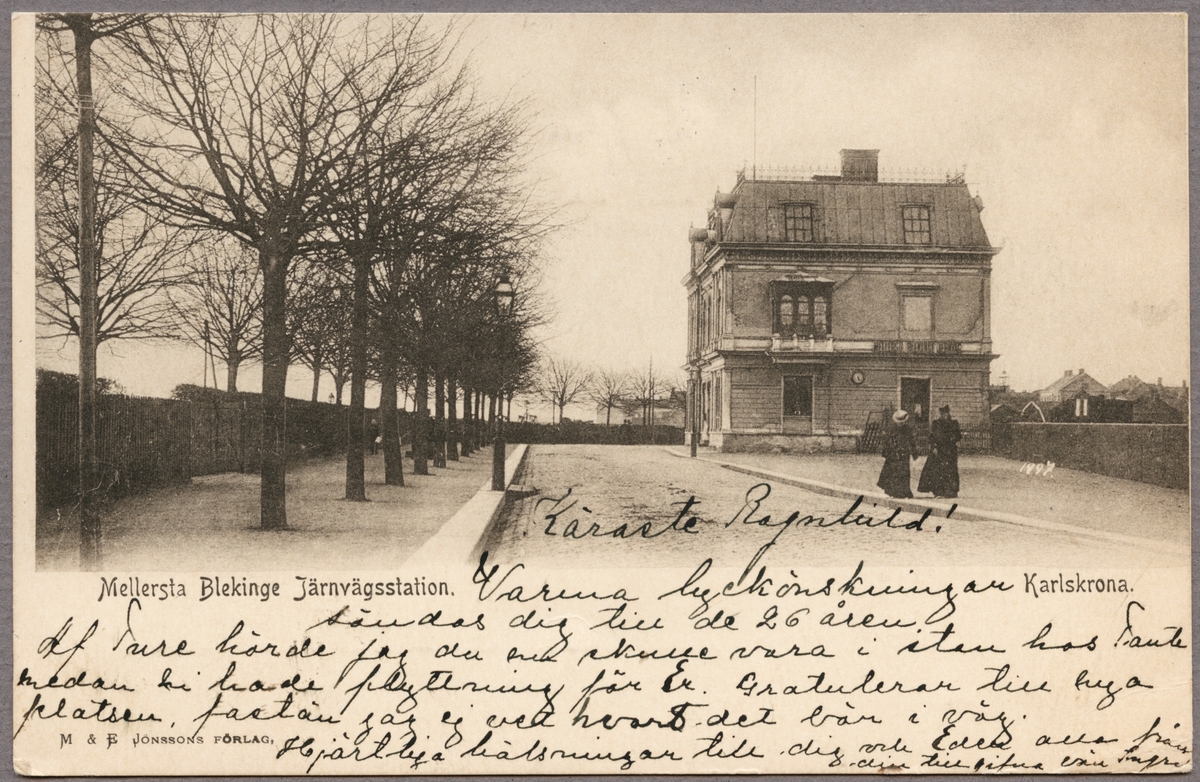 1897
Käraste Ragnhild!
Mellersta Blekinge Järnvägsstation.
Karlskrona.
Varma lyckönskningar
sändas dig till de 26 åren
Af Ture hörde jag du nu skulle vara i stan hos Tante
medan Ni hade flyttning för Er. Gratulerar till nya
platsen, fastän jag ej vet hvart det bär i väg.
M & E JONSSONS FÖRLAG,
Hjärtliga hälsningar till dig och Eder alla från
din tillgifna vän